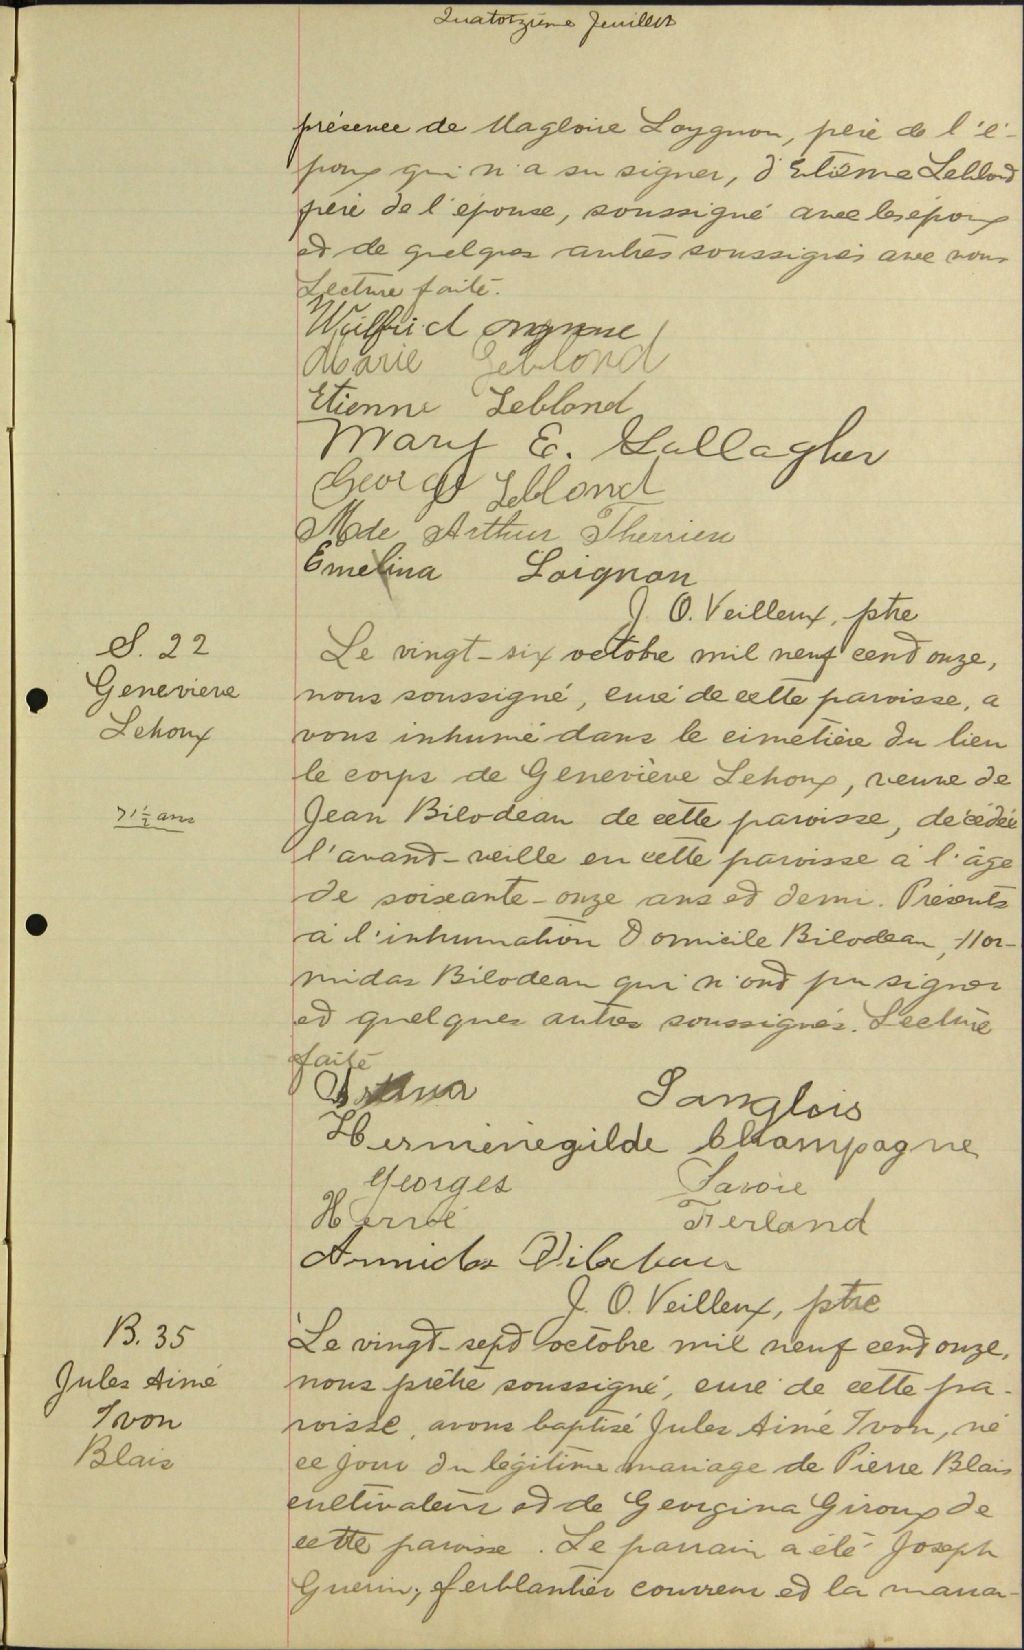 Quatorzième feuillet
présence de Magloire Loygnon, père de l'é-
poux qui n'a su signer, d'Etienne Leblond
père de l'épouse, soussigné avec les époux
et de quelques autres soussignés avec nous
Lecture faite.
Wilfrid
Marie Leblond
Etienne Leblond
Mary E. Gallagher
George Leblond
Mde Arthur Therrien
Emelina Loignon
J. O. Veilleux, ptre
S. 22
Geneviève
Lehoux
71 1/2 ans
Le vingt-six octobre mil neuf cent onze,
nous soussigné, curé de cette paroisse, a
vons inhumé dans le cimetière du lieu
le corps de Geneviève Lehoux, veuve de
Jean Bilodeau de cette paroisse, décédée
l'avant-veille en cette paroisse à l'âge
de soixante-onze ans et demi. Présents
à l'inhumation Domicile Bilodeau, Hor-
midas Bilodeau qui n'ont pu signer
et quelques autres soussignés. Lecture
faite
Langlois
Herménégilde Champagne
Georges Savoie
Hervé Ferland
J. O. Veilleux, ptre
B. 35
Jules Aimé
Yvon
Blais
Le vingt-sept octobre mil neuf cent onze,
nous prêtre soussigné, curé de cette pa-
roisse, avons baptisé Jules Aimé Yvon, né
ce jour du légitime mariage de Pierre Blais
cultivateur et de Georgina Giroux de
cette paroisse. Le parrain a été Joseph
Guerin, ferblantier couvreur et la marrai-